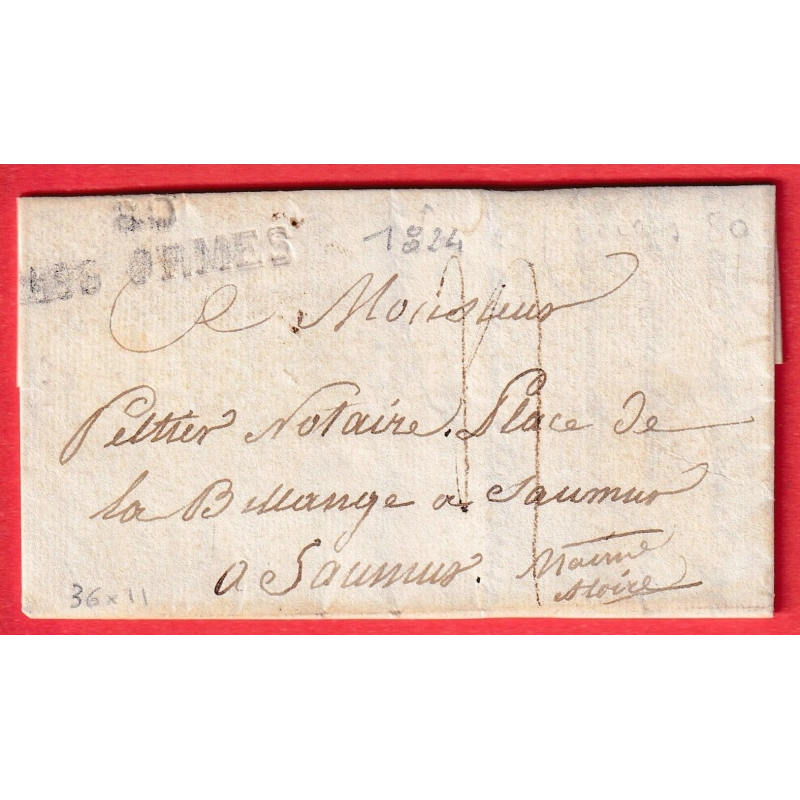 80
LES ORMES
1824
A Monsieur
Peltier Notaire. Place de
la Billange a Saumur
a Saumur. Maine
& Loire
36 x 11